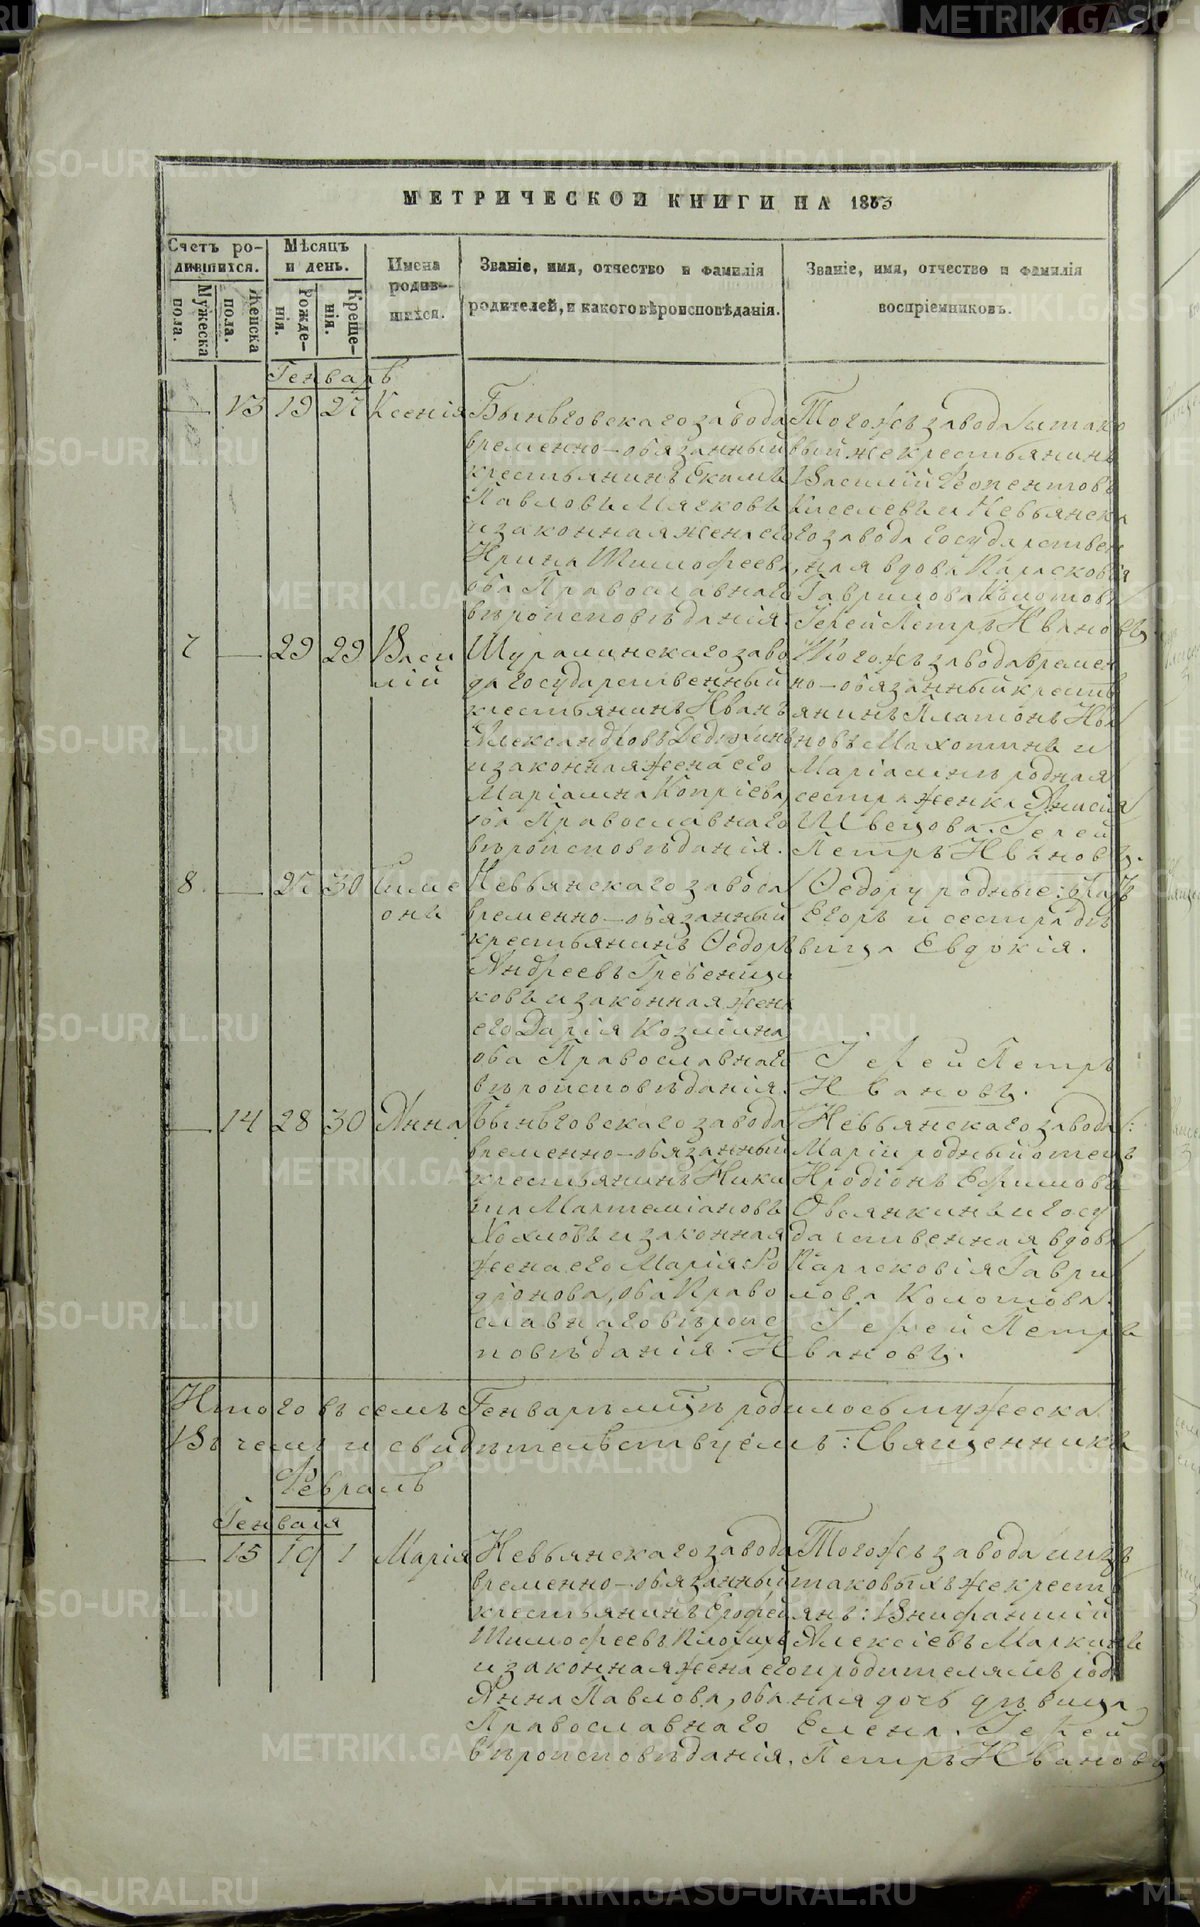 МЕТРИЧЕСКОЙ КНИГИ НА 1863
Счетъ ро-
дившихся.
Мужеска
пола.
Женска
пола.
Мѣсяцъ
и день.
Рожде-
нія.
Креще-
нія.
Имена
родив-
шихся.
Званіе, имя, отчество и фамилія
родителей, и какого вѣроисповѣданія.
Званіе, имя, отчество и фамилія
воспріемниковъ.
Генварь
13 19 27 Ксенія
Быньговскаго завода
временно-обязанный
крестьянинъ Екимъ
Павловъ Мягковъ
и законная жена его
Ирина Тимофеева,
оба Православнаго
вѣроисповѣданія.
Тогожъ завода и тако
вый же крестьянинъ
Василій
Киселевъ и Невьянска
го завода государствен
ная вдова Парасковія
Гаврилова Колотова
Іерей Петръ Ивановъ.
7 29 29 Васи
лій
Шуралинскаго заво
да государственный
крестьянинъ Иванъ
Александровъ
и законная жена его
Маріамна Копріева,
оба Православнаго
вѣроисповѣданія.
Тогожъ завода времен
но-обязанный кресть
янинъ Платонъ Ива
новъ Махотинъ и
Маріамнѣ родная
сестра женка Анисія
Швецова. Іерей
Петръ Ивановъ.
8. 27 30 Симе
онъ
Невьянскаго завода
временно-обязанный
крестьянинъ Ѳедоръ
Андреевъ Гребенщи
ковъ и законная жена
его Дарія Козмина
оба Православнаго
вѣроисповѣданія.
Ѳедору родные: братъ
Егоръ и сестра дѣ
вица Евдокія.
Іерей Петръ
Ивановъ.
14 28 30 Анна
Быньговскаго завода
временно-обязанный
крестьянинъ Ники
та Мартеміановъ
Хохловъ и законная
жена его Марія Ро
діонова, оба Право
славнаго вѣроис
повѣданія.
Невьянскаго завода:
Маріи родный отецъ
Иродіонъ Ефимовъ
Овсянкинъ и госу
дарственная вдова
Парасковія Гаври
лова Колотова.
Іерей Петръ
Ивановъ.
Итого въ семъ Генварѣ мцѣ родилось мужеска
Въ чемъ и свидѣтельствуемъ: Священникъ
Февраль
Генваря
15 19 1 Марія
Невьянскаго завода
временно-обязанный
крестьянинъ Ерофей
Тимофеевъ
и законная жена его
Анна Павлова, оба
Православнаго
вѣроисповѣданія.
Тогожъ завода и изъ
таковыхъ же кресть
янъ: Внифантій
Алексіевъ Маркинъ
и родителямъ род
ная дочь дѣвица
Елена. Іерей
Петръ Ивановъ
METRIKI.GASO-URAL.RU